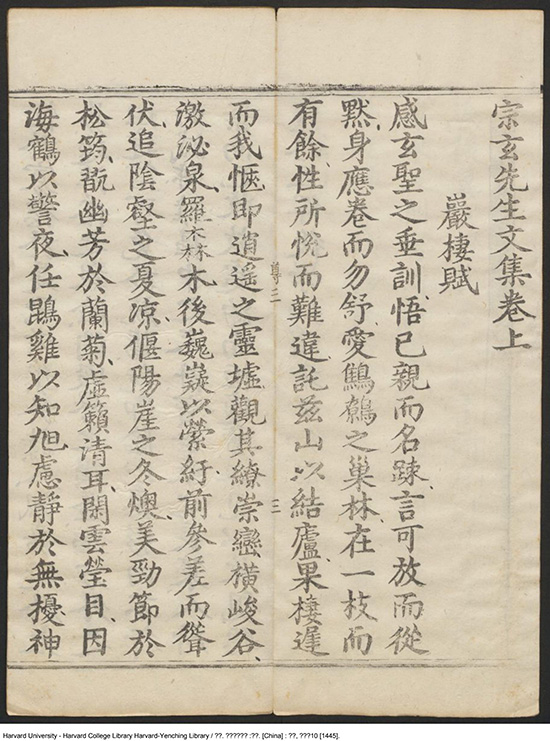 宗玄先生文集卷上
巖棲賦
感玄聖之垂訓悟已親而名踈言可放而從
黙身應卷而勿舒愛鷦鷯之巢林在一枝而
有餘性所悅而難違託茲山以結廬果棲遲
而我愜即逍遥之靈墟觀其繚崇巒橫峻谷
尊三
三
激泌泉羅木林木後巍嶷以縈紆前參差而聳
伏追陰壑之夏凉偃陽崖之冬燠美勁節於
松筠翫幽芳於蘭菊虛籟清耳閑雲瑩目因
海鶴以警夜任鵾雞以知旭慮靜於無擾神
Harvard University - Harvard College Library Harvard-Yenching Library / ??. ?????? :??. [China] : ??, ???10 [1445].